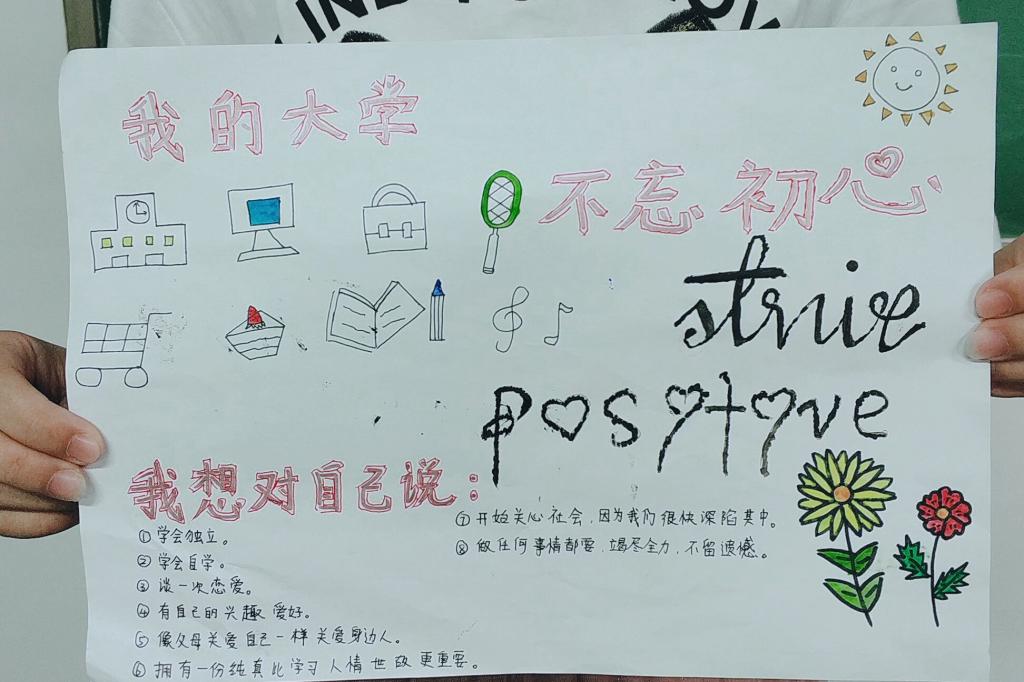 我的大学
不忘初心
strive
positive
我想对自己说：
①学会独立。
②学会自学。
③谈一次恋爱。
④有自己的兴趣爱好。
⑤像父母关爱自己一样关爱身边人。
⑥拥有一份纯真比学习人情世故更重要。
⑦开始关心社会，因为我们很快深陷其中。
⑧做任何事情都要，竭尽全力，不留遗憾。